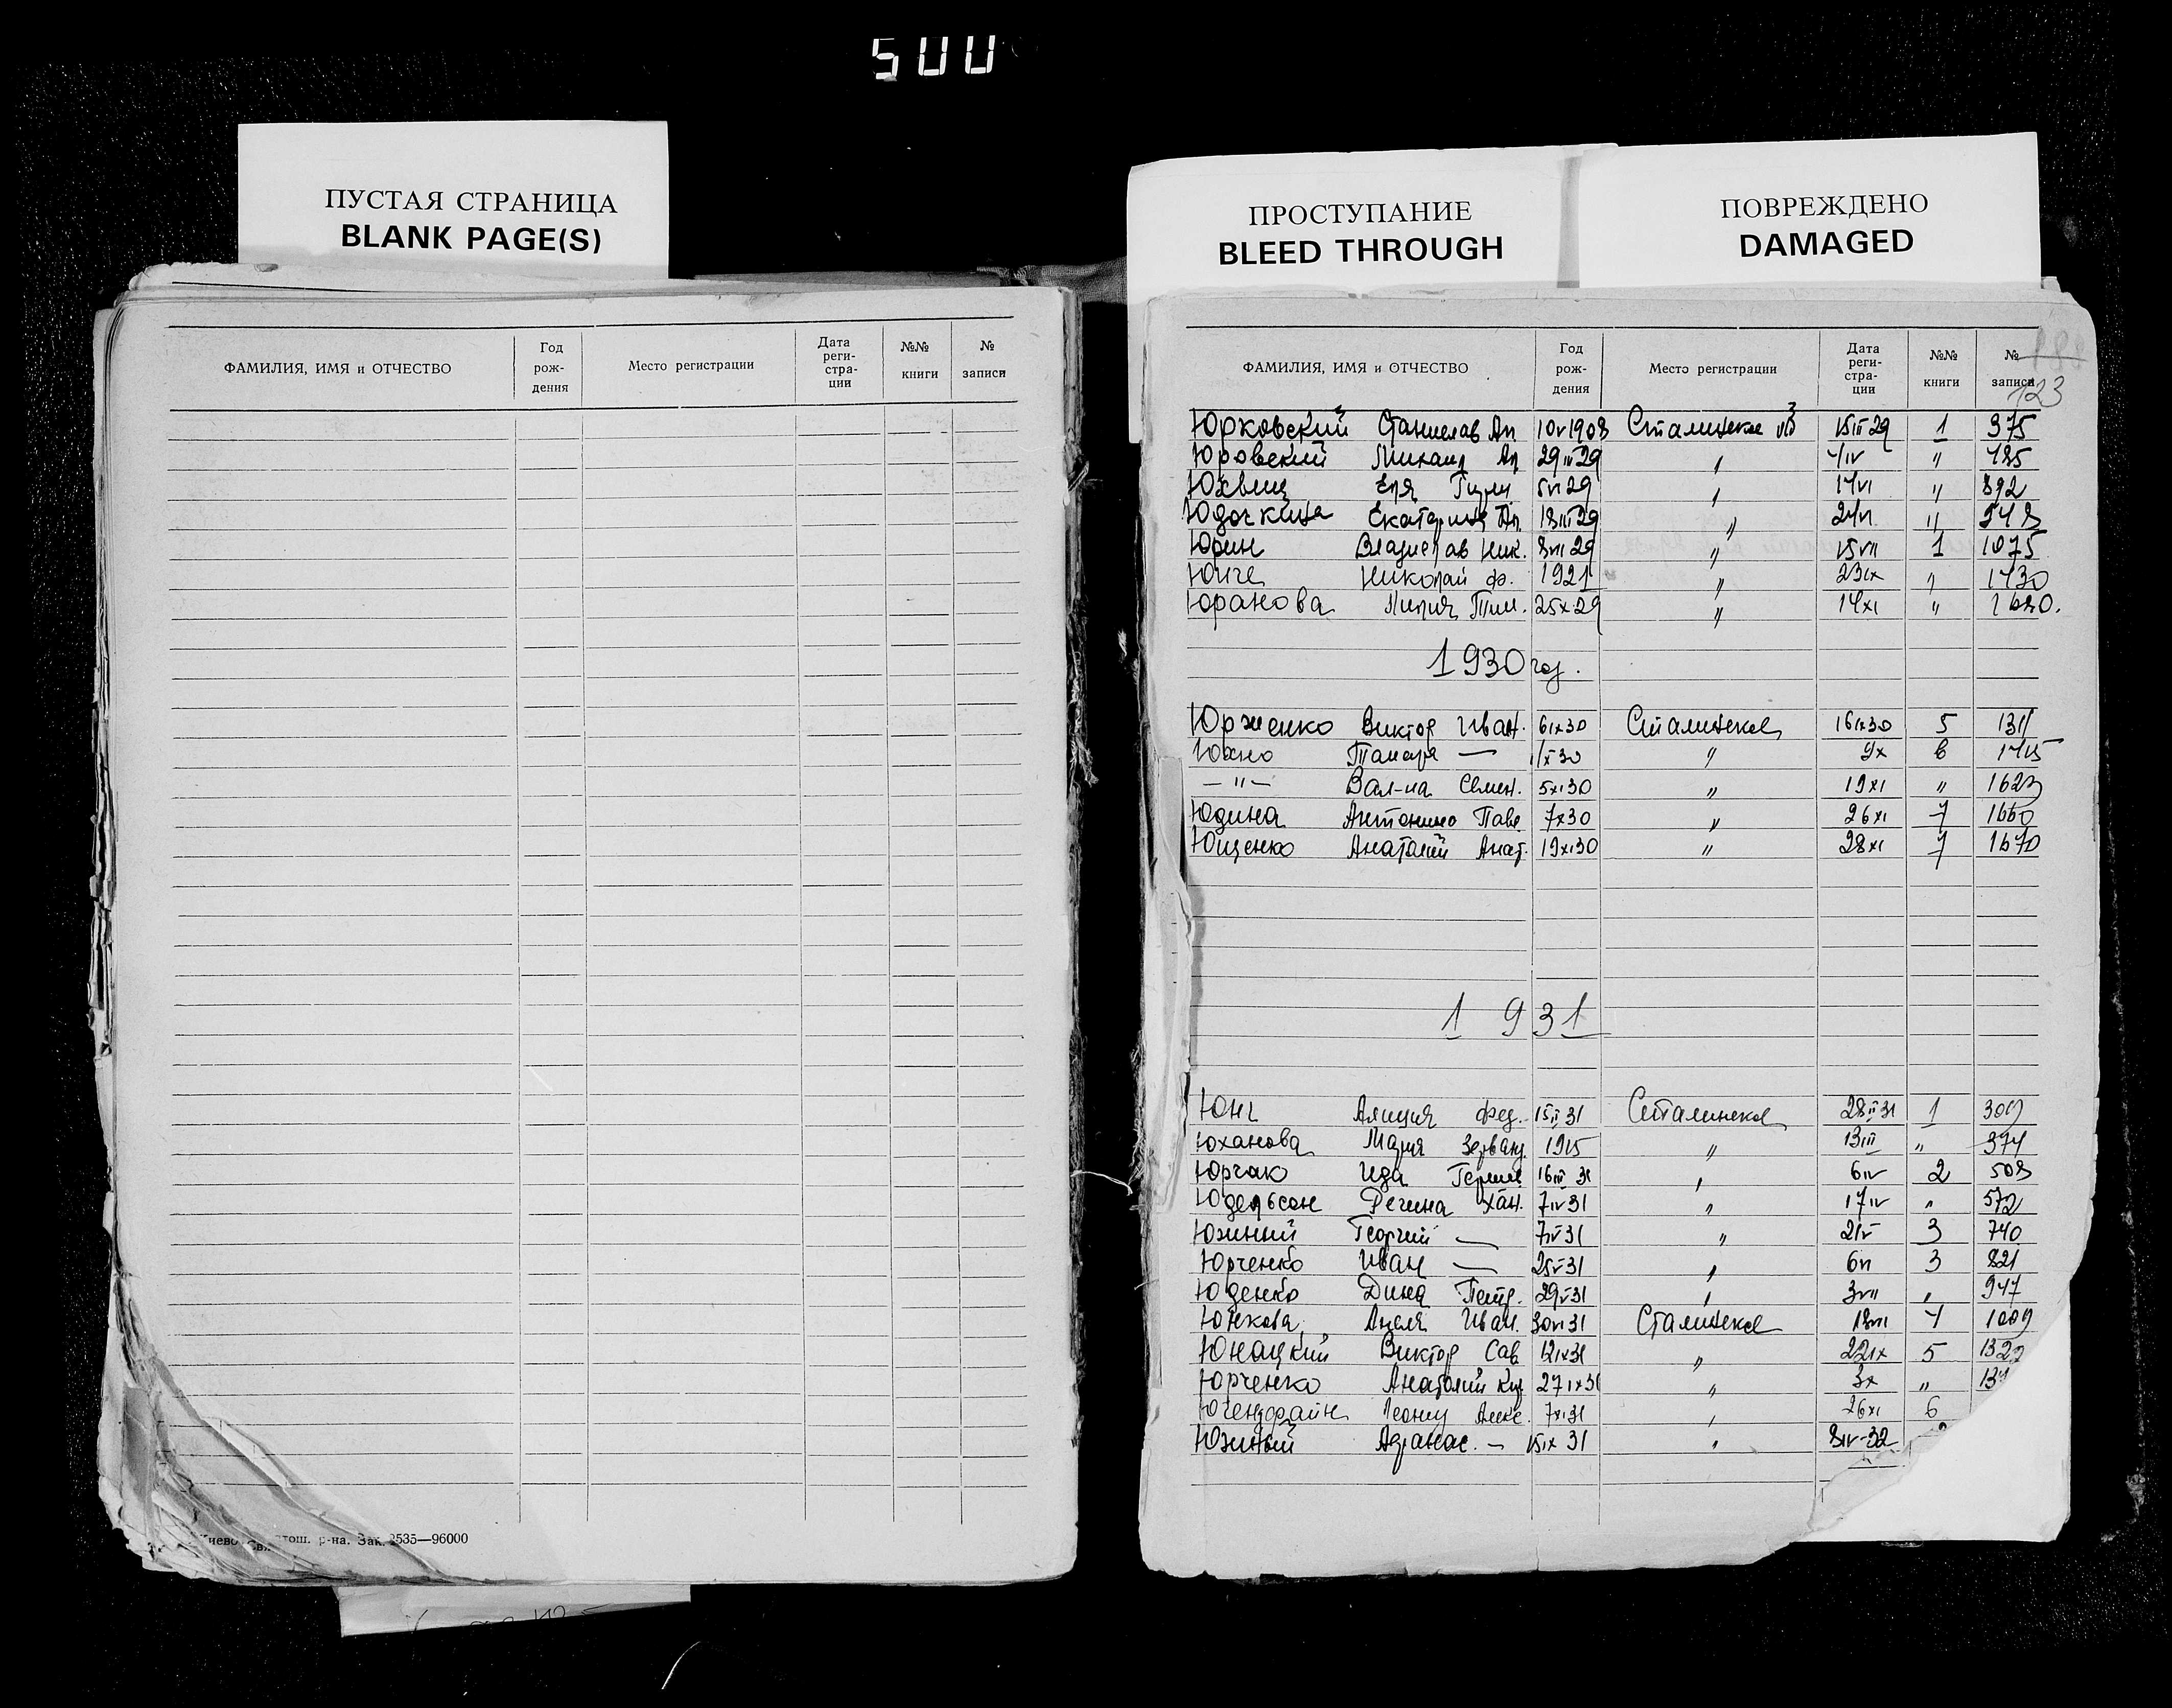 500
ПУСТАЯ СТРАНИЦА
BLANK PAGE(S)
ПРОСТУПАНИЕ
BLEED THROUGH
ПОВРЕЖДЕНО
DAMAGED
ФАМИЛИЯ, ИМЯ и ОТЧЕСТВО Год рож- дения Место регистрации Дата реги- стра- ции №№ книги № записи
р-на. Зак. 3535—96000
ФАМИЛИЯ, ИМЯ и ОТЧЕСТВО Год рож- дения Место регистрации Дата реги- стра- ции №№ книги № записи
123
Юрковский Станислав Ан. 10V1908 Сталинское 15III29 1 375
Юровский Михаил 29III29 " 4IV " 485
Юхвиц Еля 5VI29 " 14VI " 892
Юдочкина Екатерина 18III29 " 24VI " 948
Юрин Владислав Ник. 8VII29 " 15VII 1 1075
Юнге Николай Ф. 1921 " 23IX " 1430
Юранова Лидия Тим. 25X29 " 14XI " 1680.
1930 год.
Юрженко Виктор Иван. 6IX30 Сталинское 16IX30 5 1311
Юхно Тамара — 1X30 " 9X 6 1415
— " — Вал-на Семен. 5XI30 " 19XI " 1623
Юдина Антонина Павл. 7X30 " 26XI 7 1660
Ющенко Анатолий Анат. 19XI30 " 28XI 7 1670
1931
Юнг Алиция Фед. 15II31 Сталинское 28II31 1 309
Юханова Мария 1915 " 13III " 374
Юрчак Ида 16III 31 " 6IV 2 508
Юдельсон Регина Хан. 7IV31 " 17IV " 572
Южный Георгий — 7V31 " 21V 3 740
Юрченко Иван — 25V31 " 6VI 3 821
Юденко Дина Петр. 29V31 " 3VII " 947
Юнкова Анеля Иван. 30VI31 Сталинское 18VII 4 1009
Юнацкий Виктор Сав. 12IX31 " 22IX 5 132
Юрченко Анатолий 27IX31 " 3X " 13
Леонид Алекс. 7XI31 " 26XI 6
Южный Афанас. — 15IX 31 " 8IV-32